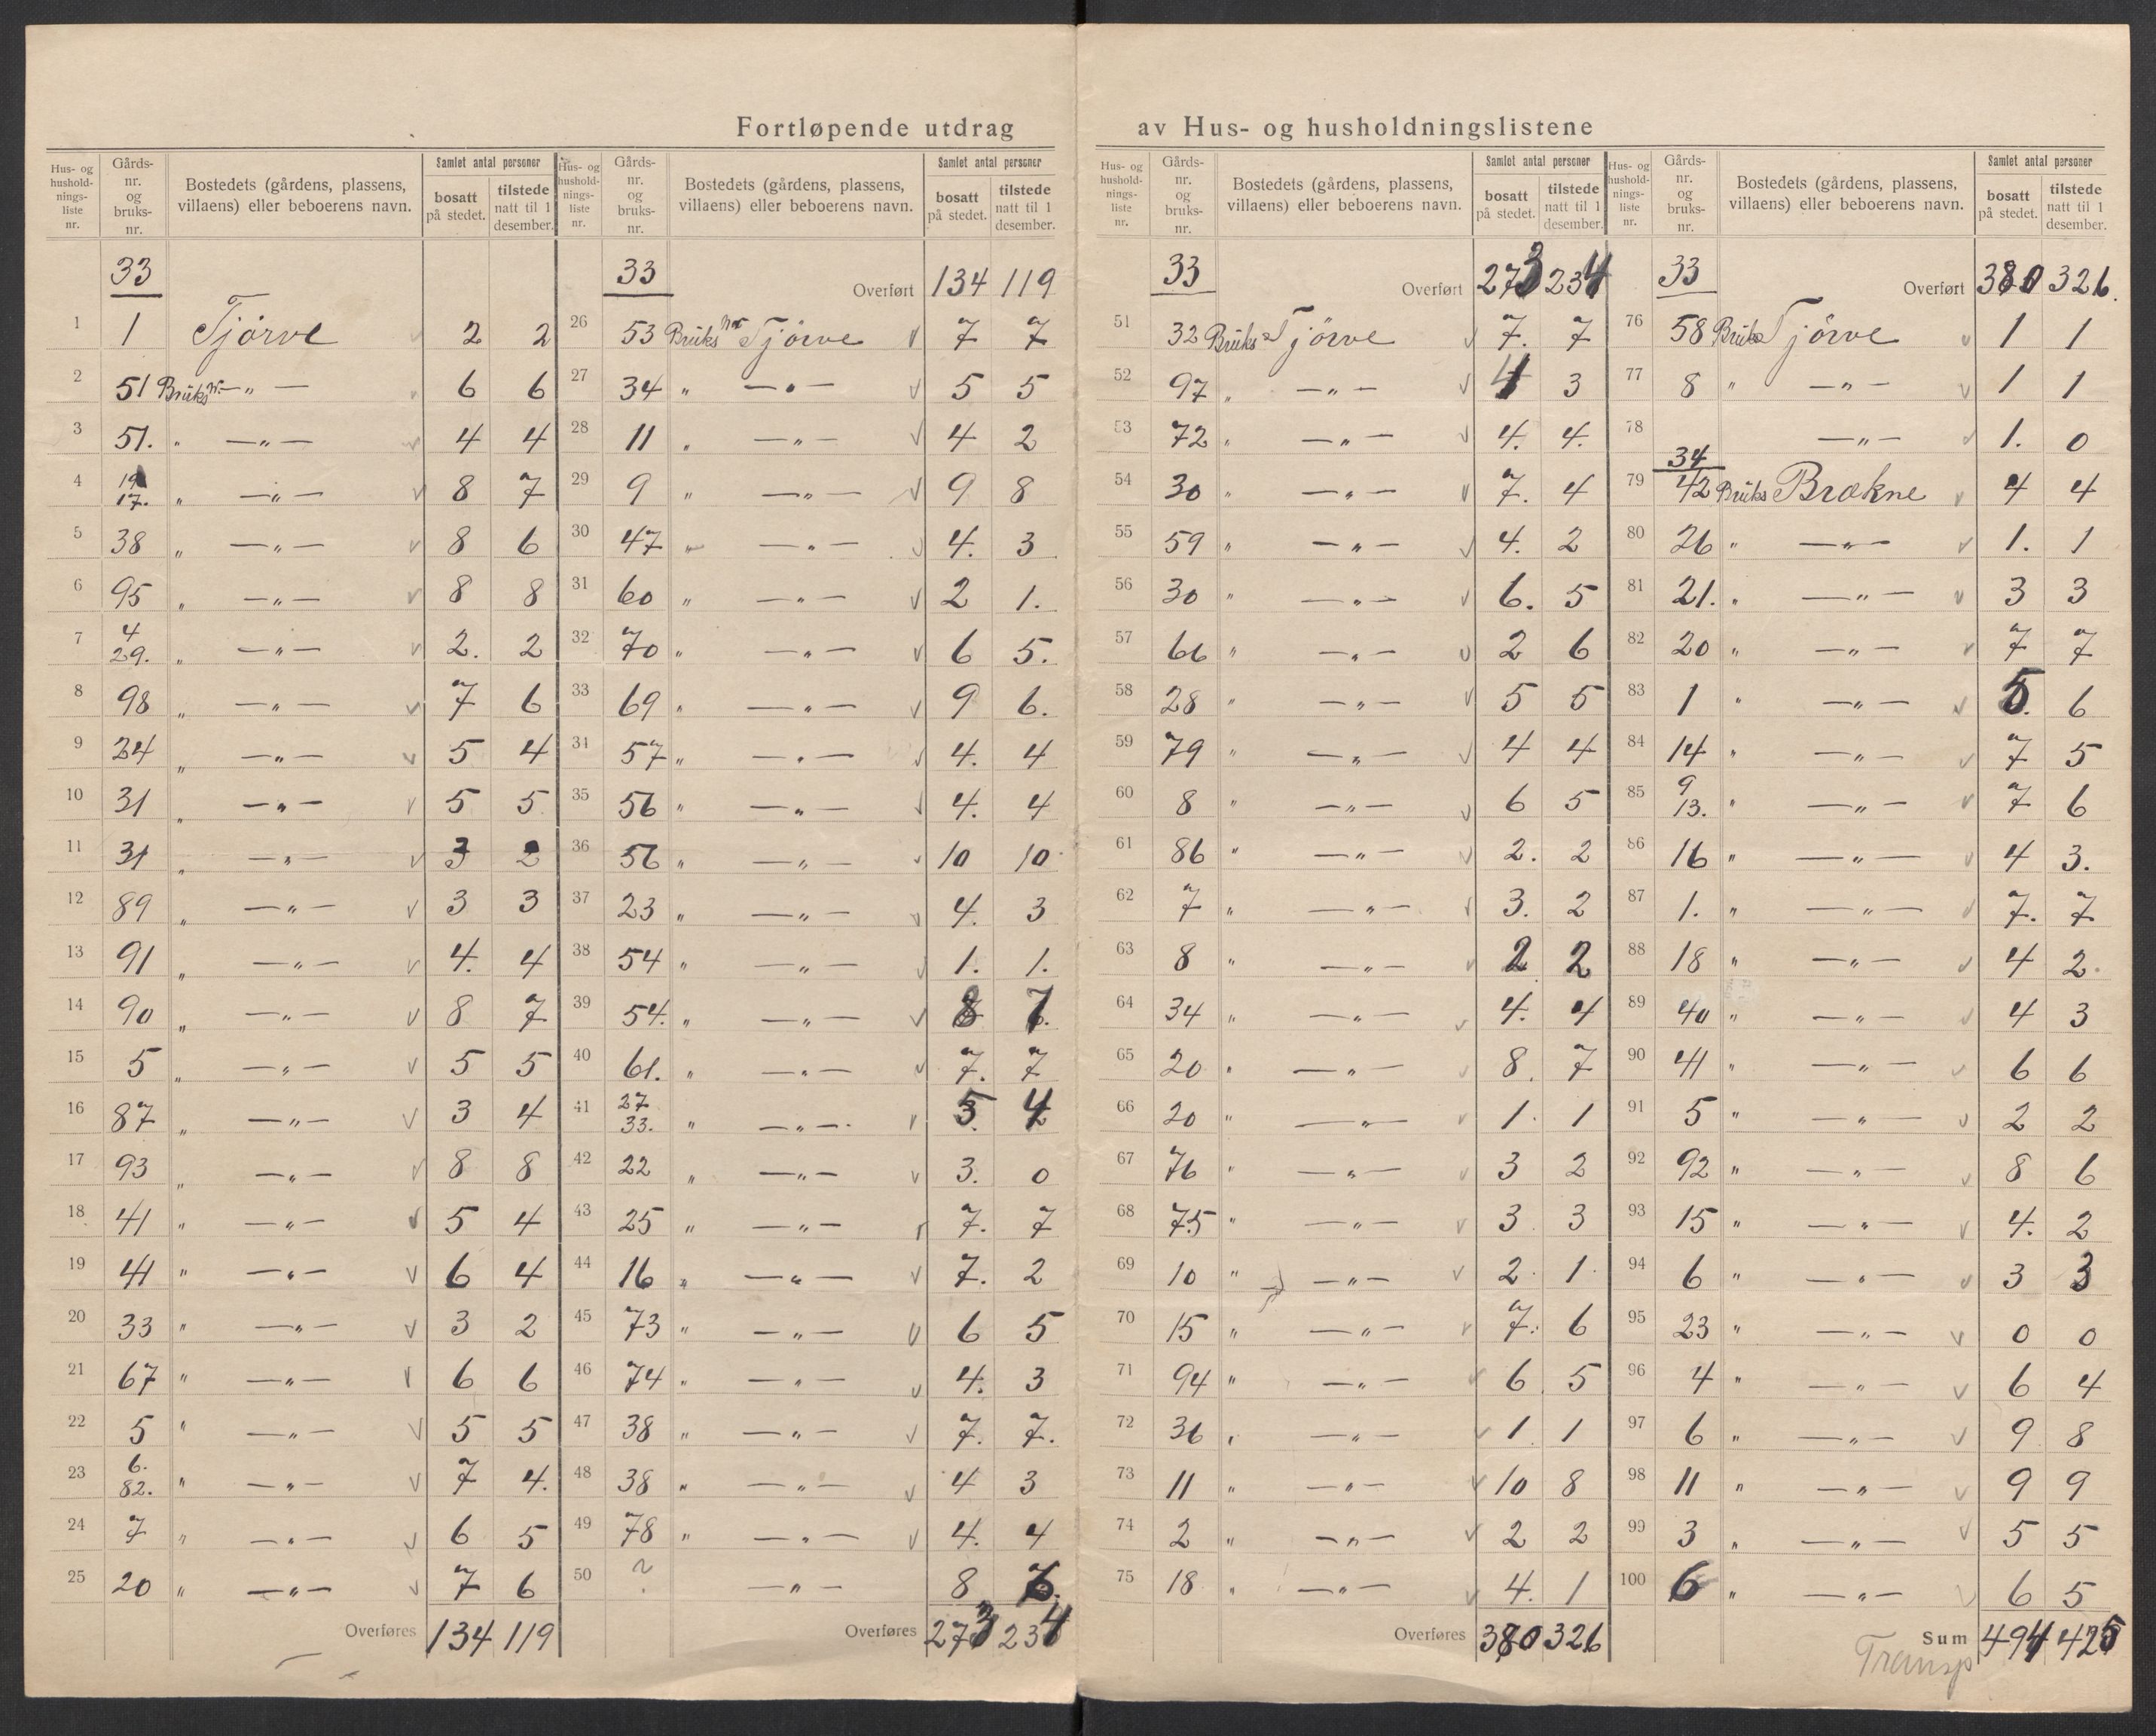 Fortløpende utdrag av Hus- og husholdningslistene
Hus- og hushold-nings-liste nr. | Gårds-nr. og bruks-nr. | Bostedets (gårdens, plassens, villaens) eller beboerens navn. | Samlet antal personer: bosatt på stedet. | tilstede natt til 1 desember.
33
1 | 1 | Tjörve | 2 | 2
2 | 51 | Bruks nr. — " — | 6 | 6
3 | 51. | " — " — | 4 | 4
4 | 19 17. | " — " — | 8 | 7
5 | 38 | " — " — | 8 | 6
6 | 95 | " — " — | 8 | 8
7 | 4 29. | " — " — | 2. | 2
8 | 98 | " — " — | 7 | 6
9 | 24 | " — " — | 5 | 4
10 | 31 | " — " — | 5 | 5
11 | 31 | " — " — | 3 | 2
12 | 89 | " — " — | 3 | 3
13 | 91 | " — " — | 4. | 4
14 | 90 | " — " — | 8 | 7
15 | 5 | " — " — | 5 | 5
16 | 87 | " — " — | 3 | 4
17 | 93 | " — " — | 8 | 8
18 | 41 | " — " — | 5 | 4
19 | 41 | " — " — | 6 | 4
20 | 33 | " — " — | 3 | 2
21 | 67 | " — " — | 6 | 6
22 | 5 | " — " — | 5 | 5
23 | 6. 82. | " — " — | 7 | 4.
24 | 7 | " — " — | 6 | 5
25 | 20 | " — " — | 7 | 6
Overføres 134 119
Hus- og hushold-nings-liste nr. | Gårds-nr. og bruks-nr. | Bostedets (gårdens, plassens, villaens) eller beboerens navn. | Samlet antal personer: bosatt på stedet. | tilstede natt til 1 desember.
33 Overført 134 119
26 | 53 | Bruks nr Tjörve | 7 | 7
27 | 34 | " — " — | 5 | 5
28 | 11 | " — " — | 4 | 2
29 | 9 | " — " — | 9 | 8
30 | 47 | " — " — | 4. | 3
31 | 60 | " — " — | 2 | 1.
32 | 70 | " — " — | 6 | 5.
33 | 69 | " — " — | 9 | 6.
34 | 57 | " — " — | 4. | 4
35 | 56 | " — " — | 4. | 4
36 | 56 | " — " — | 10 | 10
37 | 23 | " — " — | 4. | 3
38 | 54 | " — " — | 1. | 1.
39 | 54. | " — " — | 8 | 7.
40 | 61. | " — " — | 7. | 7
41 | 27 33. | " — " — | 5. | 4
42 | 22 | " — " — | 3. | 0
43 | 25 | " — " — | 7. | 7
44 | 16 | " — " — | 7. | 2
45 | 73 | " — " — | 6 | 5
46 | 74 | " — " — | 4. | 3
47 | 38 | " — " — | 7. | 7.
48 | 38 | " — " — | 4 | 3
49 | 78 | " — " — | 4. | 4
50 | ? | — " — | 8
Overføres 273 234
Hus- og hushold-nings-liste nr. | Gårds-nr. og bruks-nr. | Bostedets (gårdens, plassens, villaens) eller beboerens navn. | Samlet antal personer: bosatt på stedet. | tilstede natt til 1 desember.
33 Overført 273 234
51 | 32 | Bruks Tjörve | 7. | 7
52 | 97 | " — " — | 4 | 3
53 | 72 | " — " — | 4. | 4.
54 | 30 | " — " — | 7. | 4
55 | 59 | " — " — | 4. | 2
56 | 30 | " — " — | 6. | 5
57 | 66 | " — " — | 2 | 6
58 | 28 | " — " — | 5 | 5
59 | 79 | " — " — | 4 | 4
60 | 8 | " — " — | 6 | 5
61 | 86 | " — " — | 2. | 2
62 | 7 | " — " — | 3. | 2
63 | 8 | " — " — | 2 | 2
64 | 34 | " — " — | 4. | 4
65 | 20 | " — " — | 8. | 7
66 | 20 | " — " — | 1. | 1
67 | 76 | " — " — | 3 | 2
68 | 75 | " — " — | 3. | 3
69 | 10 | " — " — | 2. | 1.
70 | 15 | " — " — | 7. | 6
71 | 94 | " — " — | 6. | 5
72 | 36 | " — " — | 1. | 1
73 | 11 | " — " — | 10 | 8
74 | 2 | " — " — | 2 | 2
75 | 18 | " — " — | 4. | 1
Overføres 380 326
Hus- og hushold-nings-liste nr. | Gårds-nr. og bruks-nr. | Bostedets (gårdens, plassens, villaens) eller beboerens navn. | Samlet antal personer: bosatt på stedet. | tilstede natt til 1 desember.
33 Overført 380 326.
76 | 58 | Bruks Tjörve | 1 | 1
77 | 8 | " — " — | 1 | 1
78 | — " — | 1. | 0
34
79 | 42 | Bruks Brækne | 4 | 4
80 | 26 | " — " — | 1. | 1
81 | 21. | " — " — | 3 | 3
82 | 20 | " — " — | 7 | 7
83 | 1 | " — " — | 5. | 6
84 | 14 | " — " — | 7 | 5
85 | 9 13. | " — " — | 7 | 6
86 | 16 | " — " — | 4 | 3.
87 | 1. | " — " — | 7. | 7
88 | 18 | " — " — | 4 | 2.
89 | 40 | " — " — | 4 | 3
90 | 41 | " — " — | 6 | 6
91 | 5 | " — " — | 2 | 2
92 | 92 | " — " — | 8 | 6
93 | 15 | " — " — | 4. | 2
94 | 6 | " — " — | 3 | 3
95 | 23 | " — " — | 0 | 0
96 | 4 | " — " — | 6 | 4
97 | 6 | " — " — | 9 | 8
98 | 11 | " — " — | 9 | 9
99 | 3 | " — " — | 5 | 5
100 | 6 | " — " — | 6 | 5
Sum 494 425
Transp